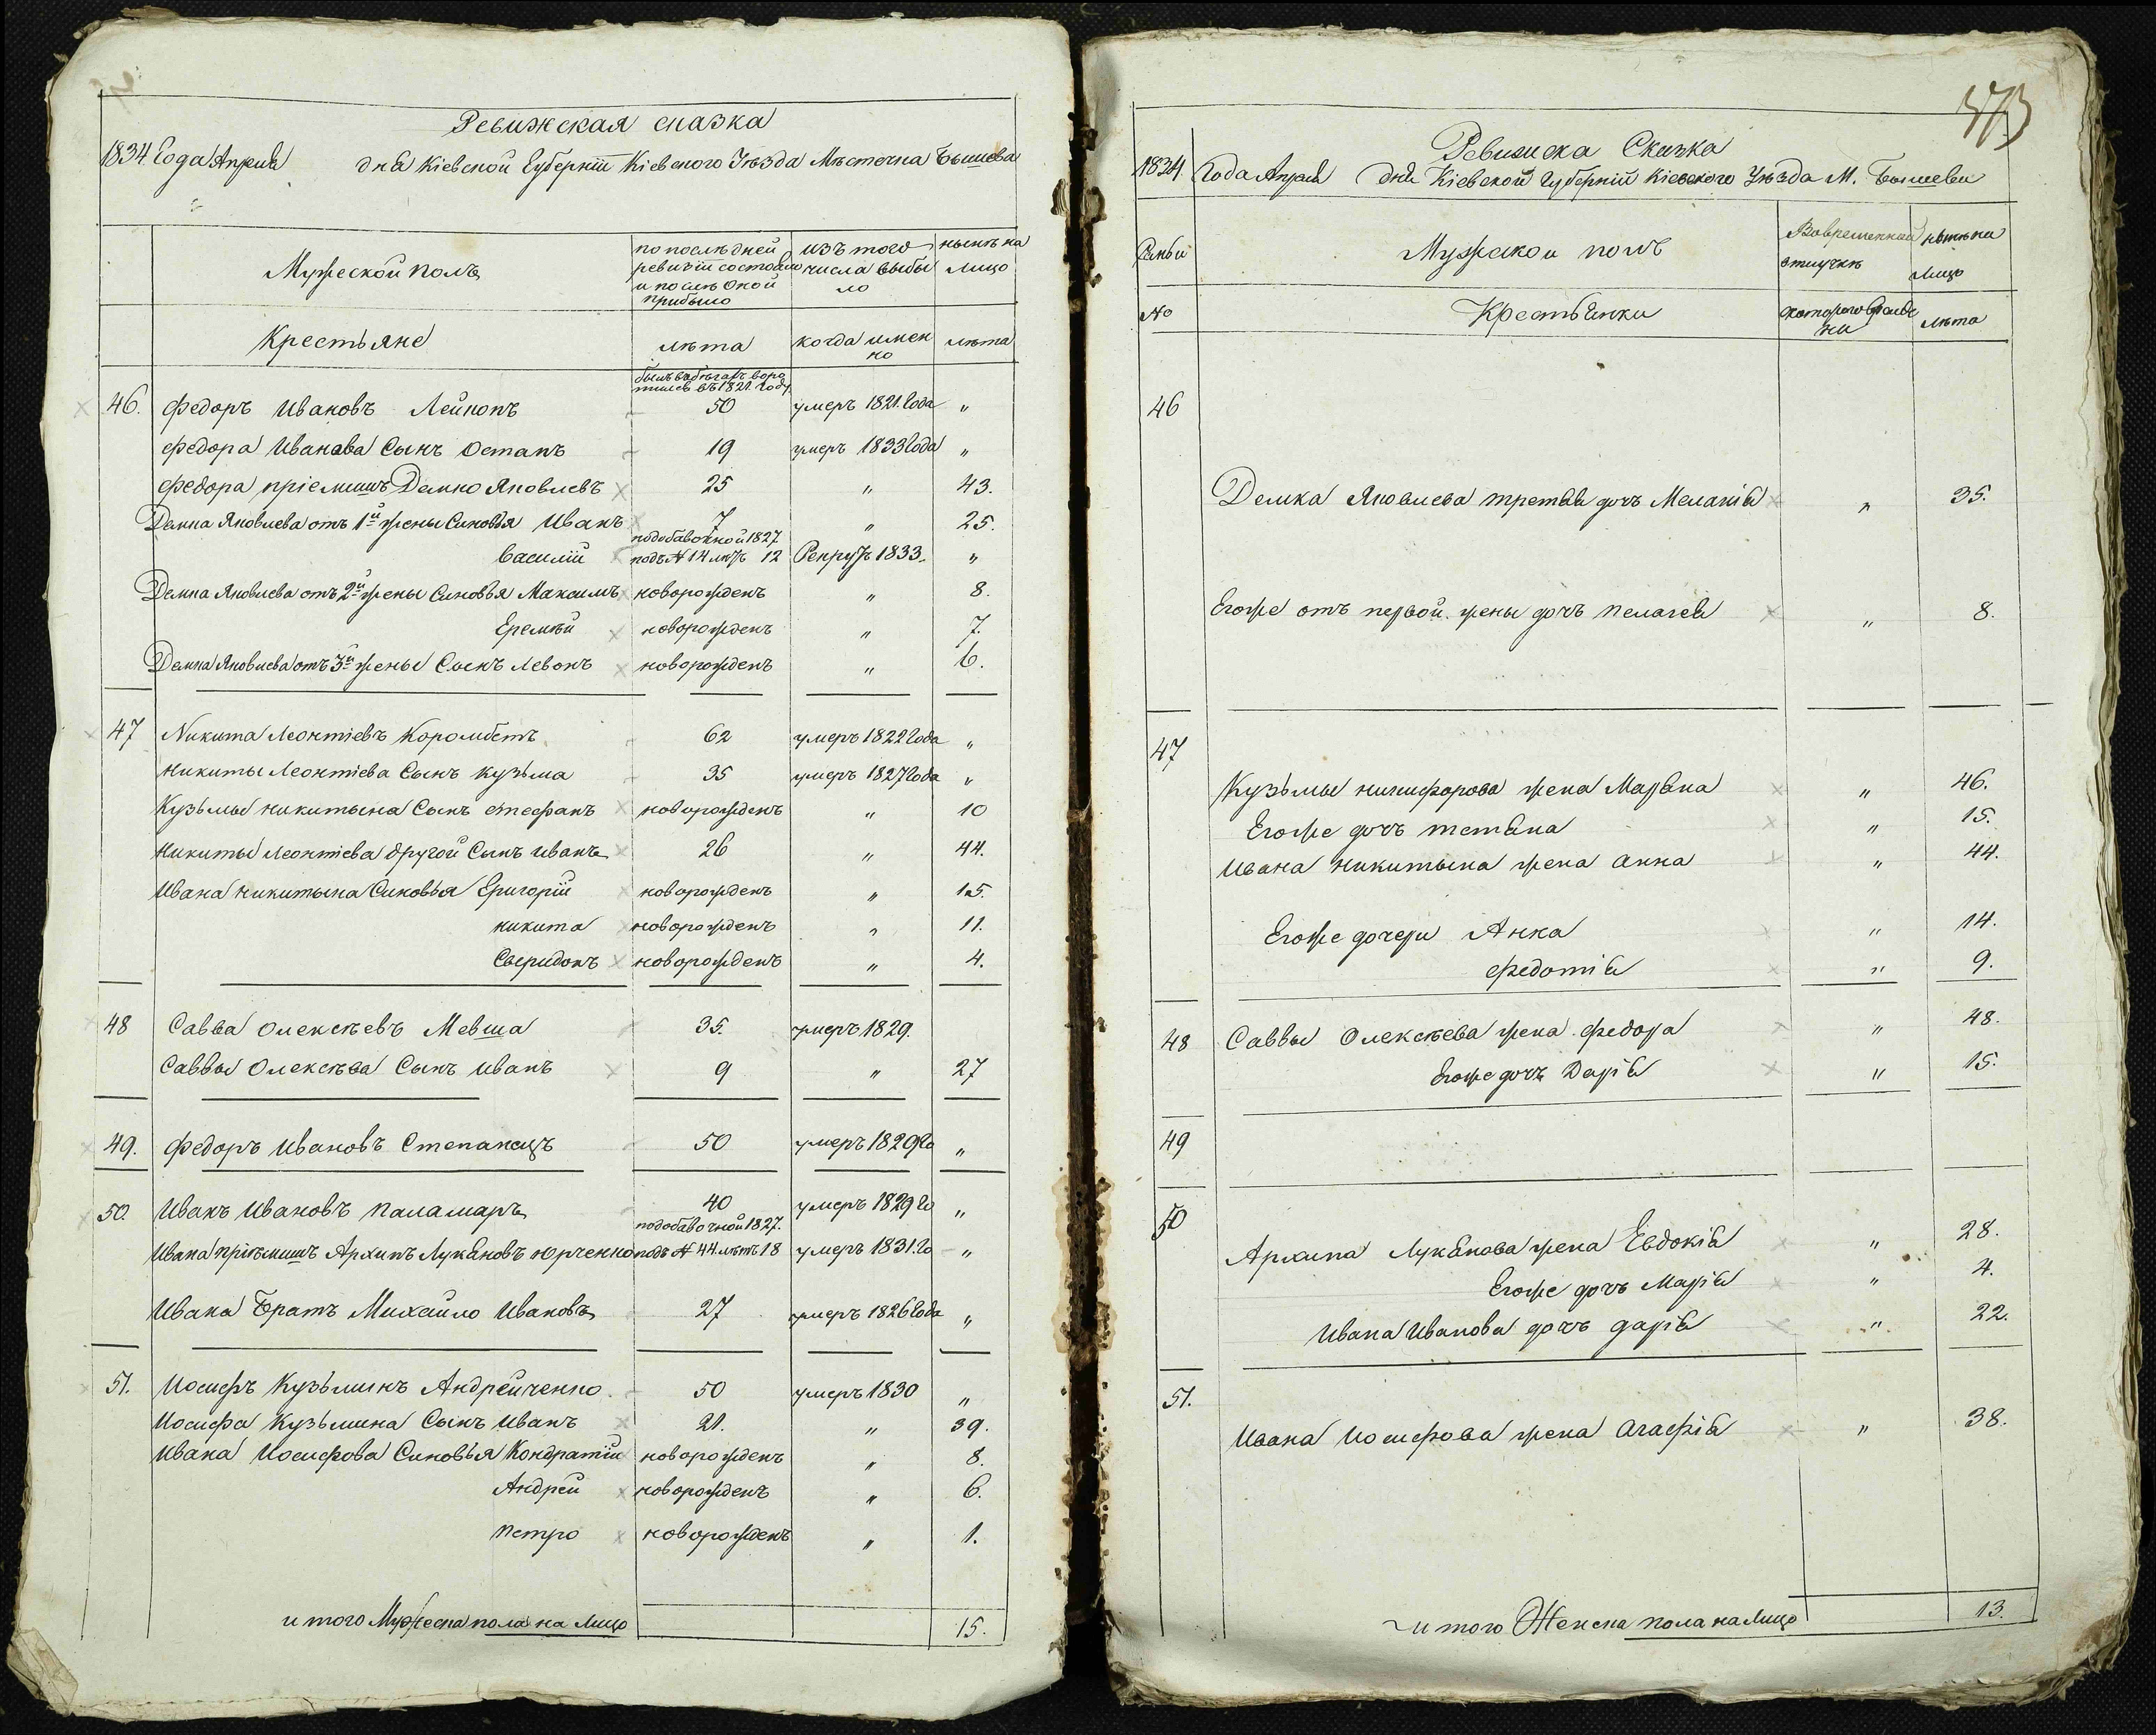 Ревижская сказка
1834 Года Апреля дня Кіевской Губерніи Кіевского Уѣзда Мѣстечка Бышева
Мужеской полъ
по послѣдней ревизіи состояло и послѣ оной прибыло
изъ того числа выбыло
нынѣ на лицо
Крестьяне
лѣта
когда именно
лѣта
былъ въ бѣгахъ воротился въ 1821. году
46. Федоръ Ивановъ Лейконъ 50 умеръ 1821. Года "
Федора Иванова Сынъ Остапъ 19 умеръ 1833 Года "
Федора пріемишъ Демко Яковлевъ 25 " 43.
Демка Яковлева отъ 1й жены Синовья Иванъ 7 " 25.
подобавочной 1827
Василій подъ № 14 лѣтъ 12 Рекрутъ 1833. "
Демка Яковлева отъ 2й жены Синовья Максимъ новорожденъ " 8.
Еремѣй новорожденъ " 7.
Демка Яковлева отъ 3й жены Сынъ Левонъ новорожденъ " 6.
47 Никита Леонтіевъ 62 умеръ 1822 Года "
Никиты Леонтіева Сынъ Кузьма 35 умеръ 1827 Года "
Кузьмы Никитына Сынъ Стефанъ новорожденъ " 10
Никиты Леонтіева другой Сынъ Иванъ 26 " 44.
Ивана Никитына Синовья Григорій новорожденъ " 15.
Никита новорожденъ " 11.
Свиридонъ новорожденъ " 4.
48 Савва Олексѣевъ Мевша 35. умеръ 1829.
Саввы Олексѣева Сынъ Иванъ 9 " 27
49. Федоръ Ивановъ Степанецъ 50 умеръ 1829 Го "
50. Иванъ Ивановъ Паламаръ 40 умеръ 1829 Го "
подобавочной 1827.
Ивана пріемишъ Архипъ Лукяновъ Юрченко подъ № 44. лѣтъ 18 умеръ 1831. Го "
Ивана Братъ Михайло Ивановъ 27 умеръ 1826 Года "
51. Иосифъ Кузьминъ Андрейченко 50 умеръ 1830 "
Иосифа Кузьмина Сынъ Иванъ 21. " 39.
Ивана Иосифова Синовья Кондратій новорожденъ " 8.
Андрей новорожденъ " 6.
Петро новорожденъ " 1.
итого Мужеска пола на Лицо 15.
373
Ревизска Сказка
1834 Года Апреля дня Кіевской Губерній Кіевского Уѣзда М. Бышева
Мужскои полъ
Вовременной отлучкѣ
нынѣ на Лицо
№
Крестьянки
лѣта
46
Демка Яковлева третья дочъ Меланія " 35.
Егоже отъ первой жены дочъ Пелагея " 8.
47
Кузьмы Никифорова жена Маряна " 46.
Егоже дочъ Тетяна " 15.
Ивана Никитына жена Анна " 44.
Егоже дочери Анна " 14.
Федотія " 9.
48 Саввы Олексѣева жена Федора " 48.
Егоже дочъ Дарія " 15.
49
50
Архипа Лукянова жена Евдокія " 28.
Егоже дочъ Марія " 4.
Ивана Иванова дочъ Дарія " 22.
51.
Ивана Иосифова жена Агафія " 38.
итого Женска пола на Лицо 13.